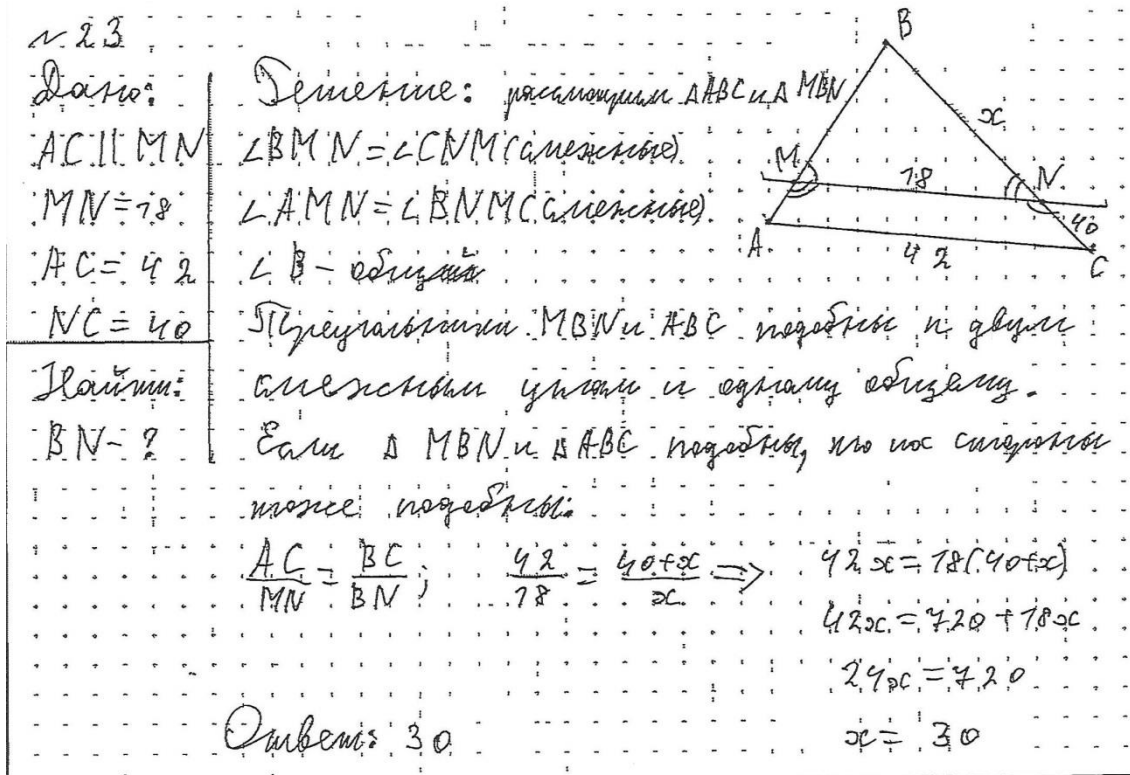 № 23
Дано:
AC || MN
MN = 18
AC = 42
NC = 40
Найти:
BN - ?
Решение: рассмотрим ΔABC и Δ MBN
∠BMN = ∠CNM (смежные)
∠AMN = ∠BNM (смежные)
∠B - общий
Треугольники MBN и ABC подобны по двум
смежным углам и одному общему.
Если Δ MBN и ΔABC подобны, то их стороны
тоже подобны:
AC/MN = BC/BN; 42/18 = 40+x/x =>
42x = 18(40+x)
42x = 720 + 18x
24x = 720
x = 30
Ответ: 30
B
x
M
18
N
40
A
42
C